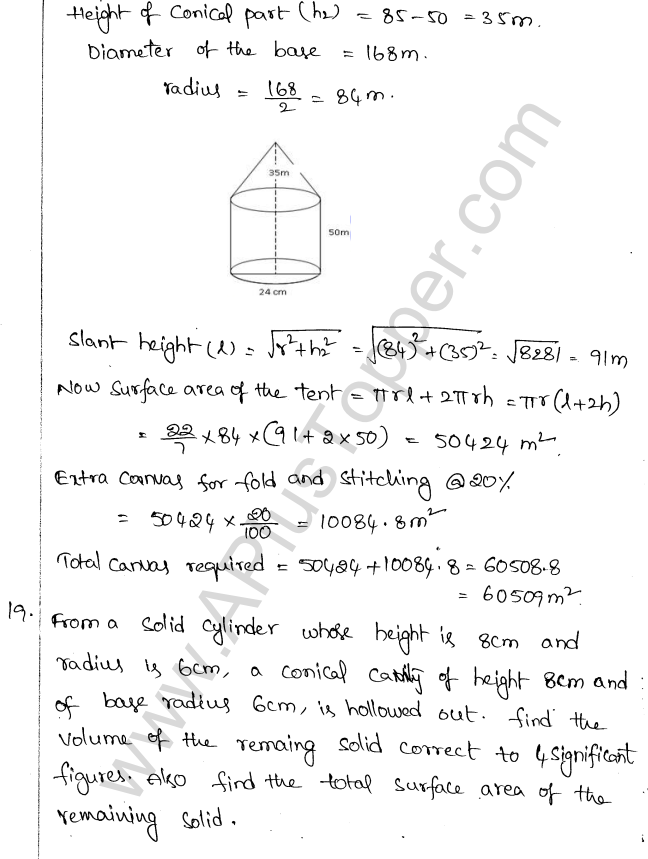 Height of Conical part (h₂) = 85-50 = 35m.
Diameter of the base = 168m.
radius = 168/2 = 84m.
35m
50m
24 cm
Slant height (l) = √r²+h₂² = √(84)²+(35)² = √8281 = 91m
Now Surface area of the tent = πrl + 2πrh = πr(l+2h)
= 22/7 × 84 × (91 + 2 × 50) = 50424 m².
Extra canvas for fold and stitching @20%
= 50424 × 20/100 = 10084.8m²
Total canvas required = 50424 + 10084.8 = 60508.8
= 60509m².
19. From a solid cylinder whose height is 8cm and
radius is 6cm, a conical cavity of height 8cm and
of base radius 6cm, is hollowed out. find the
volume of the remaing solid correct to 4 significant
figures. Also find the total surface area of the
remaining solid.
www.APlusTopper.com